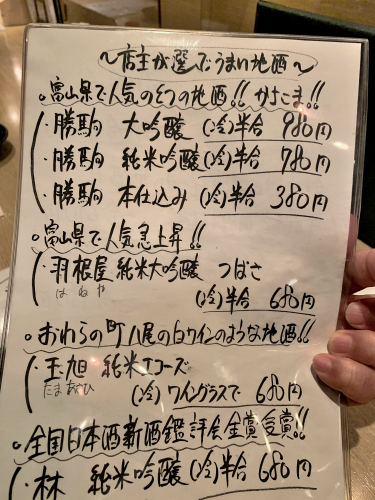 〜店主が選んだうまい地酒〜
。富山県で人気のそつの地酒!! かちこま!!
・勝駒 大吟醸 (冷)半合 980円
・勝駒 純米吟醸 (冷)半合 780円
・勝駒 本仕込み (冷)半合 380円
。富山県で人気急上昇!!
・羽根屋 純米大吟醸 つばさ
はねや
(冷)半合 680円
。おわらの町八尾の白ワインのような地酒!!
・玉旭 純米Tコーズ
たまあさひ
(冷)ワイングラスで 680円
。全国日本酒新酒鑑評会金賞受賞!!
・林 純米吟醸 (冷)半合 680円